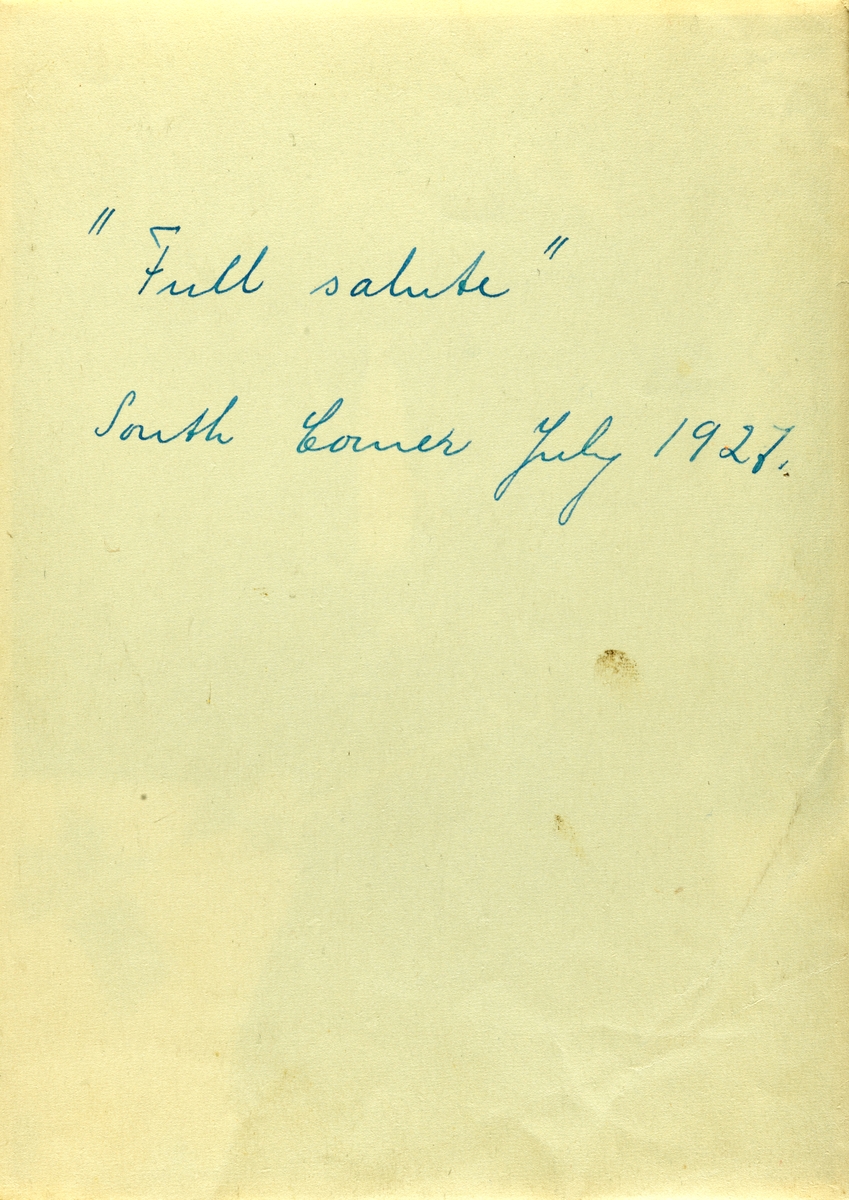 "Full salute"
South Corner July 1927.